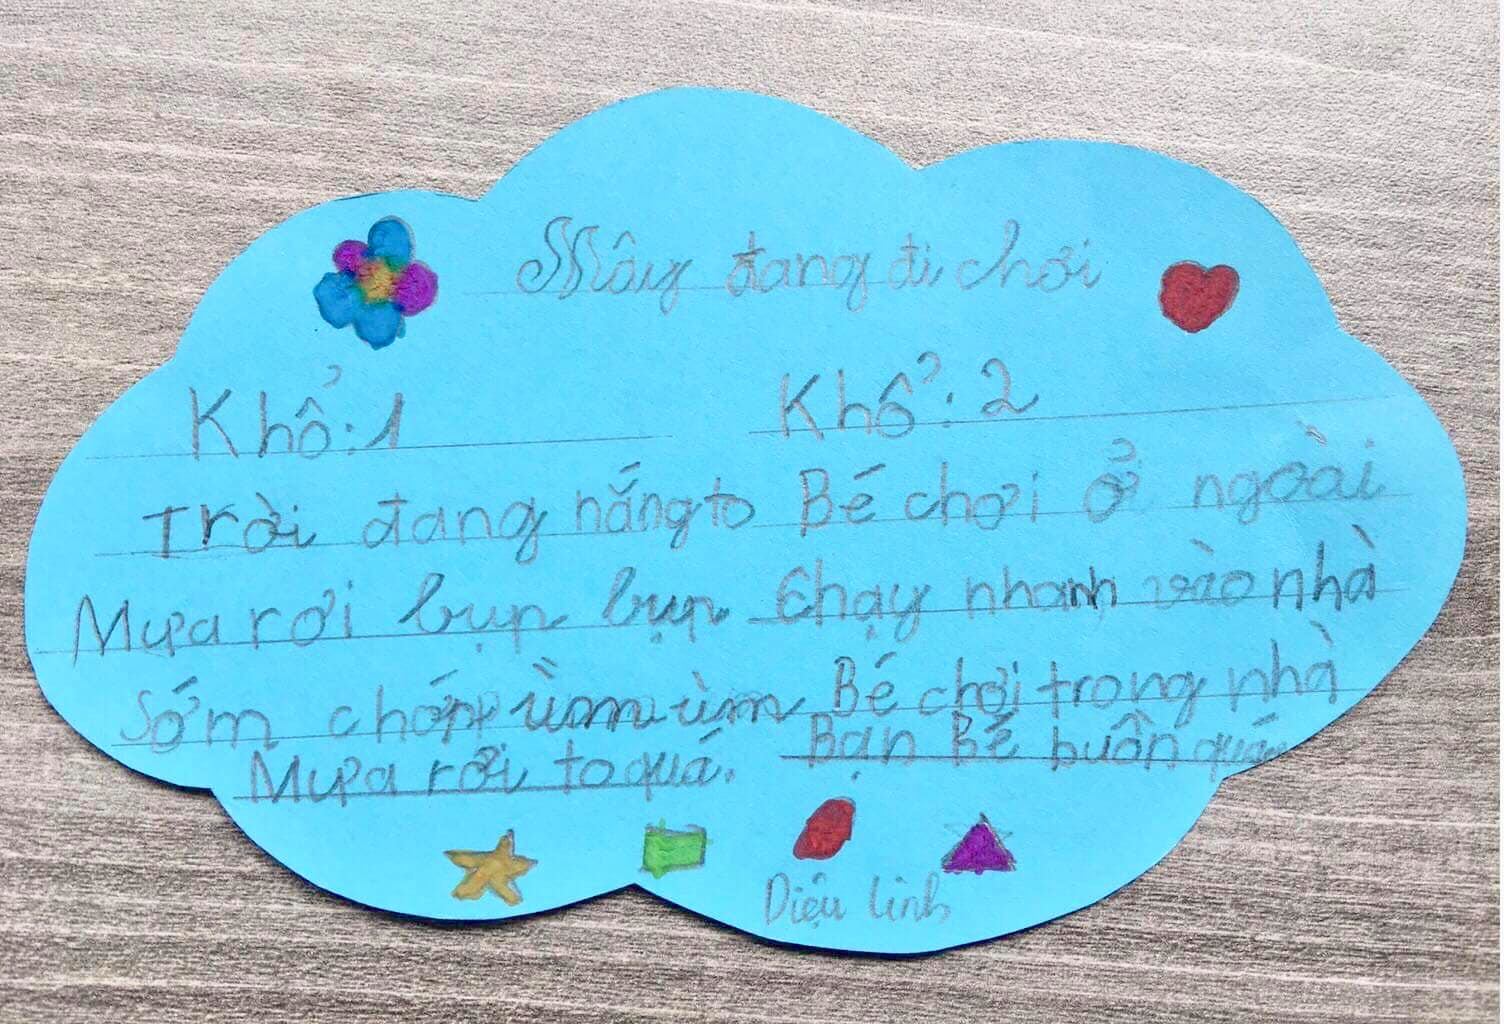 Mây đang đi chơi
Khổ:1
Trời đang nắng to
Mưa rơi bụp bụp
Sớm chớp ùm ùm
Mưa rơi to quá.
Khổ: 2
Bé chơi ở ngoài
Chạy nhanh vào nhà
Bé chơi trong nhà
Bạn Bé buồn quá
Diệu linh